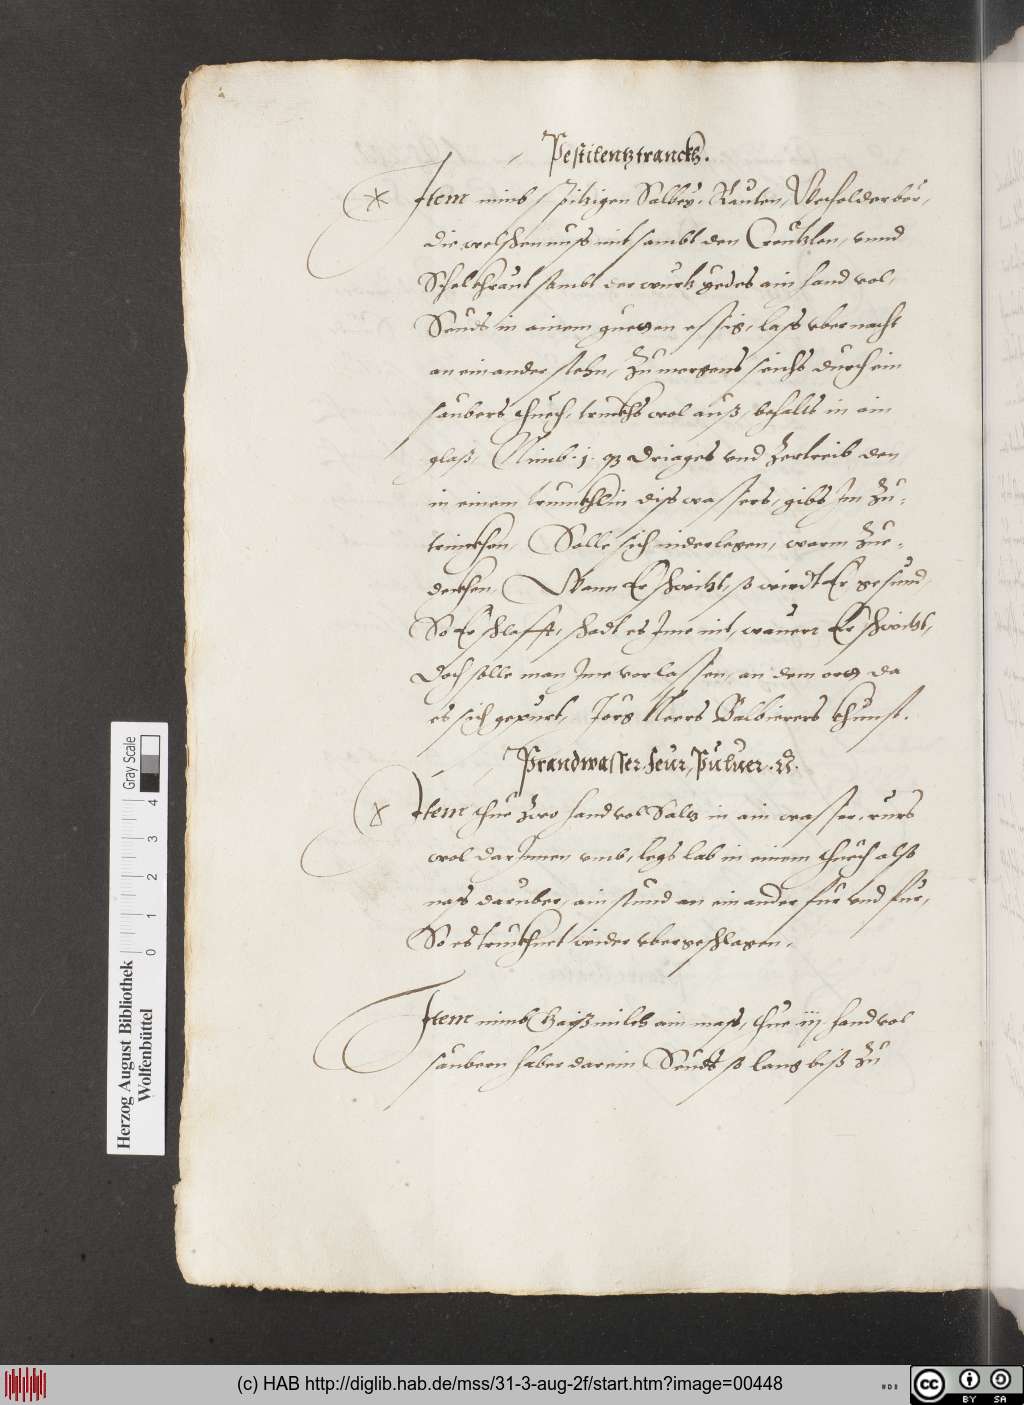 Pestilentztranckh.
Item nimb spitzigen Salbey, Rauten, Wecholderber,
die welschen nuss mit sambt den Creutzlen, vnnd
Schelchraut sambt der wurtz yedes ain hand vol,
Seuds in einem gueten essig, lass vber nacht
an einander stehn, Zu morgens seichs durch ein
saubers thuech, truckhs wol auß, behalts in ain
glaß, Nimb .1. Driages vnd Zertreib den
in einem trunckhlin diss wassers, gibs Im Zu-
trinckhen, Solle sich niderlegen, warm Zue-
deckhen, Wann Er schwitzt, so wirdt Er gesund,
So Er schlafft, schadt es Ime nit, wannn Er schwitzt,
Doch solle man Ime verlassen, an dem ort, da
es sich gepurt, Jörg Balbierers khunst.
Prandwasser. Feur, Puluer.
Item thue Zwo hand vol Saltz in ain wasser, rürs
wol dar Innen vmb, legs lab in einem thuech also
nass daruber, ain stund an einander fur vnd fur,
So es truckhnet wider vbergeschlagen.
Item nimb Gaißmilch ain mass, thue iij hand vol
saubern haber darein Seuds so lang biß Zu
Herzog August Bibliothek
Wolfenbüttel
Gray Scale
0 1 2 3 4
(c) HAB http://diglib.hab.de/mss/31-3-aug-2f/start.htm?image=00448
cc BY SA